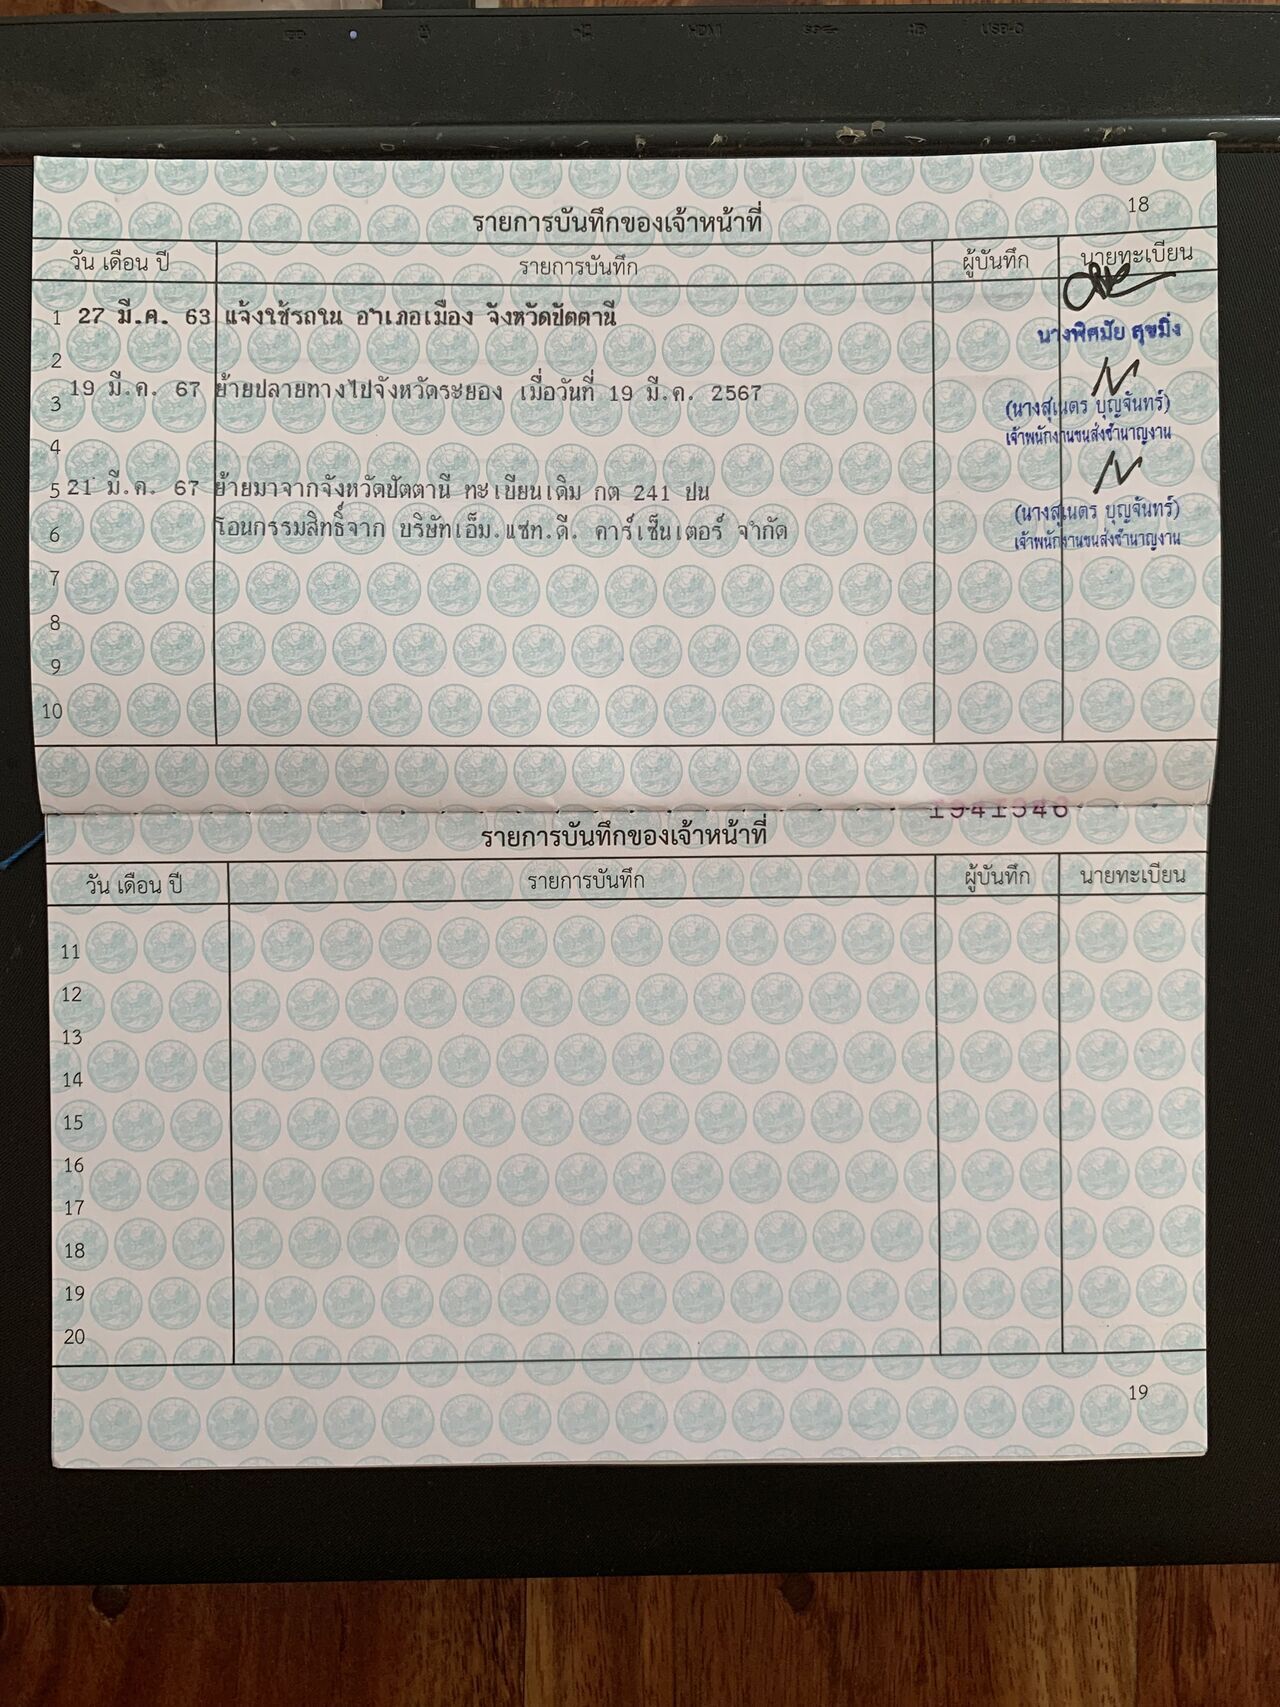 18
รายการบันทึกของเจ้าหน้าที่
วัน เดือน ปี รายการบันทึก ผู้บันทึก นายทะเบียน
1 27 มี.ค. 63 แจ้งใช้รถใน อำเภอเมือง จังหวัดปัตตานี
นางพิศมัย สุขมิ่ง
2
3 19 มี.ค. 67 ย้ายปลายทางไปจังหวัดระยอง เมื่อวันที่ 19 มี.ค. 2567
(นางสุเนตร บุญจันทร์)
เจ้าพนักงานขนส่งชำนาญงาน
4
5 21 มี.ค. 67 ย้ายมาจากจังหวัดปัตตานี ทะเบียนเดิม กต 241 ปน
(นางสุเนตร บุญจันทร์)
6 โอนกรรมสิทธิ์จาก บริษัทเอ็ม.แซท.ดี. คาร์เซ็นเตอร์ จำกัด
เจ้าพนักงานขนส่งชำนาญงาน
7
8
9
10
1941546
รายการบันทึกของเจ้าหน้าที่
วัน เดือน ปี รายการบันทึก ผู้บันทึก นายทะเบียน
11
12
13
14
15
16
17
18
19
20
19